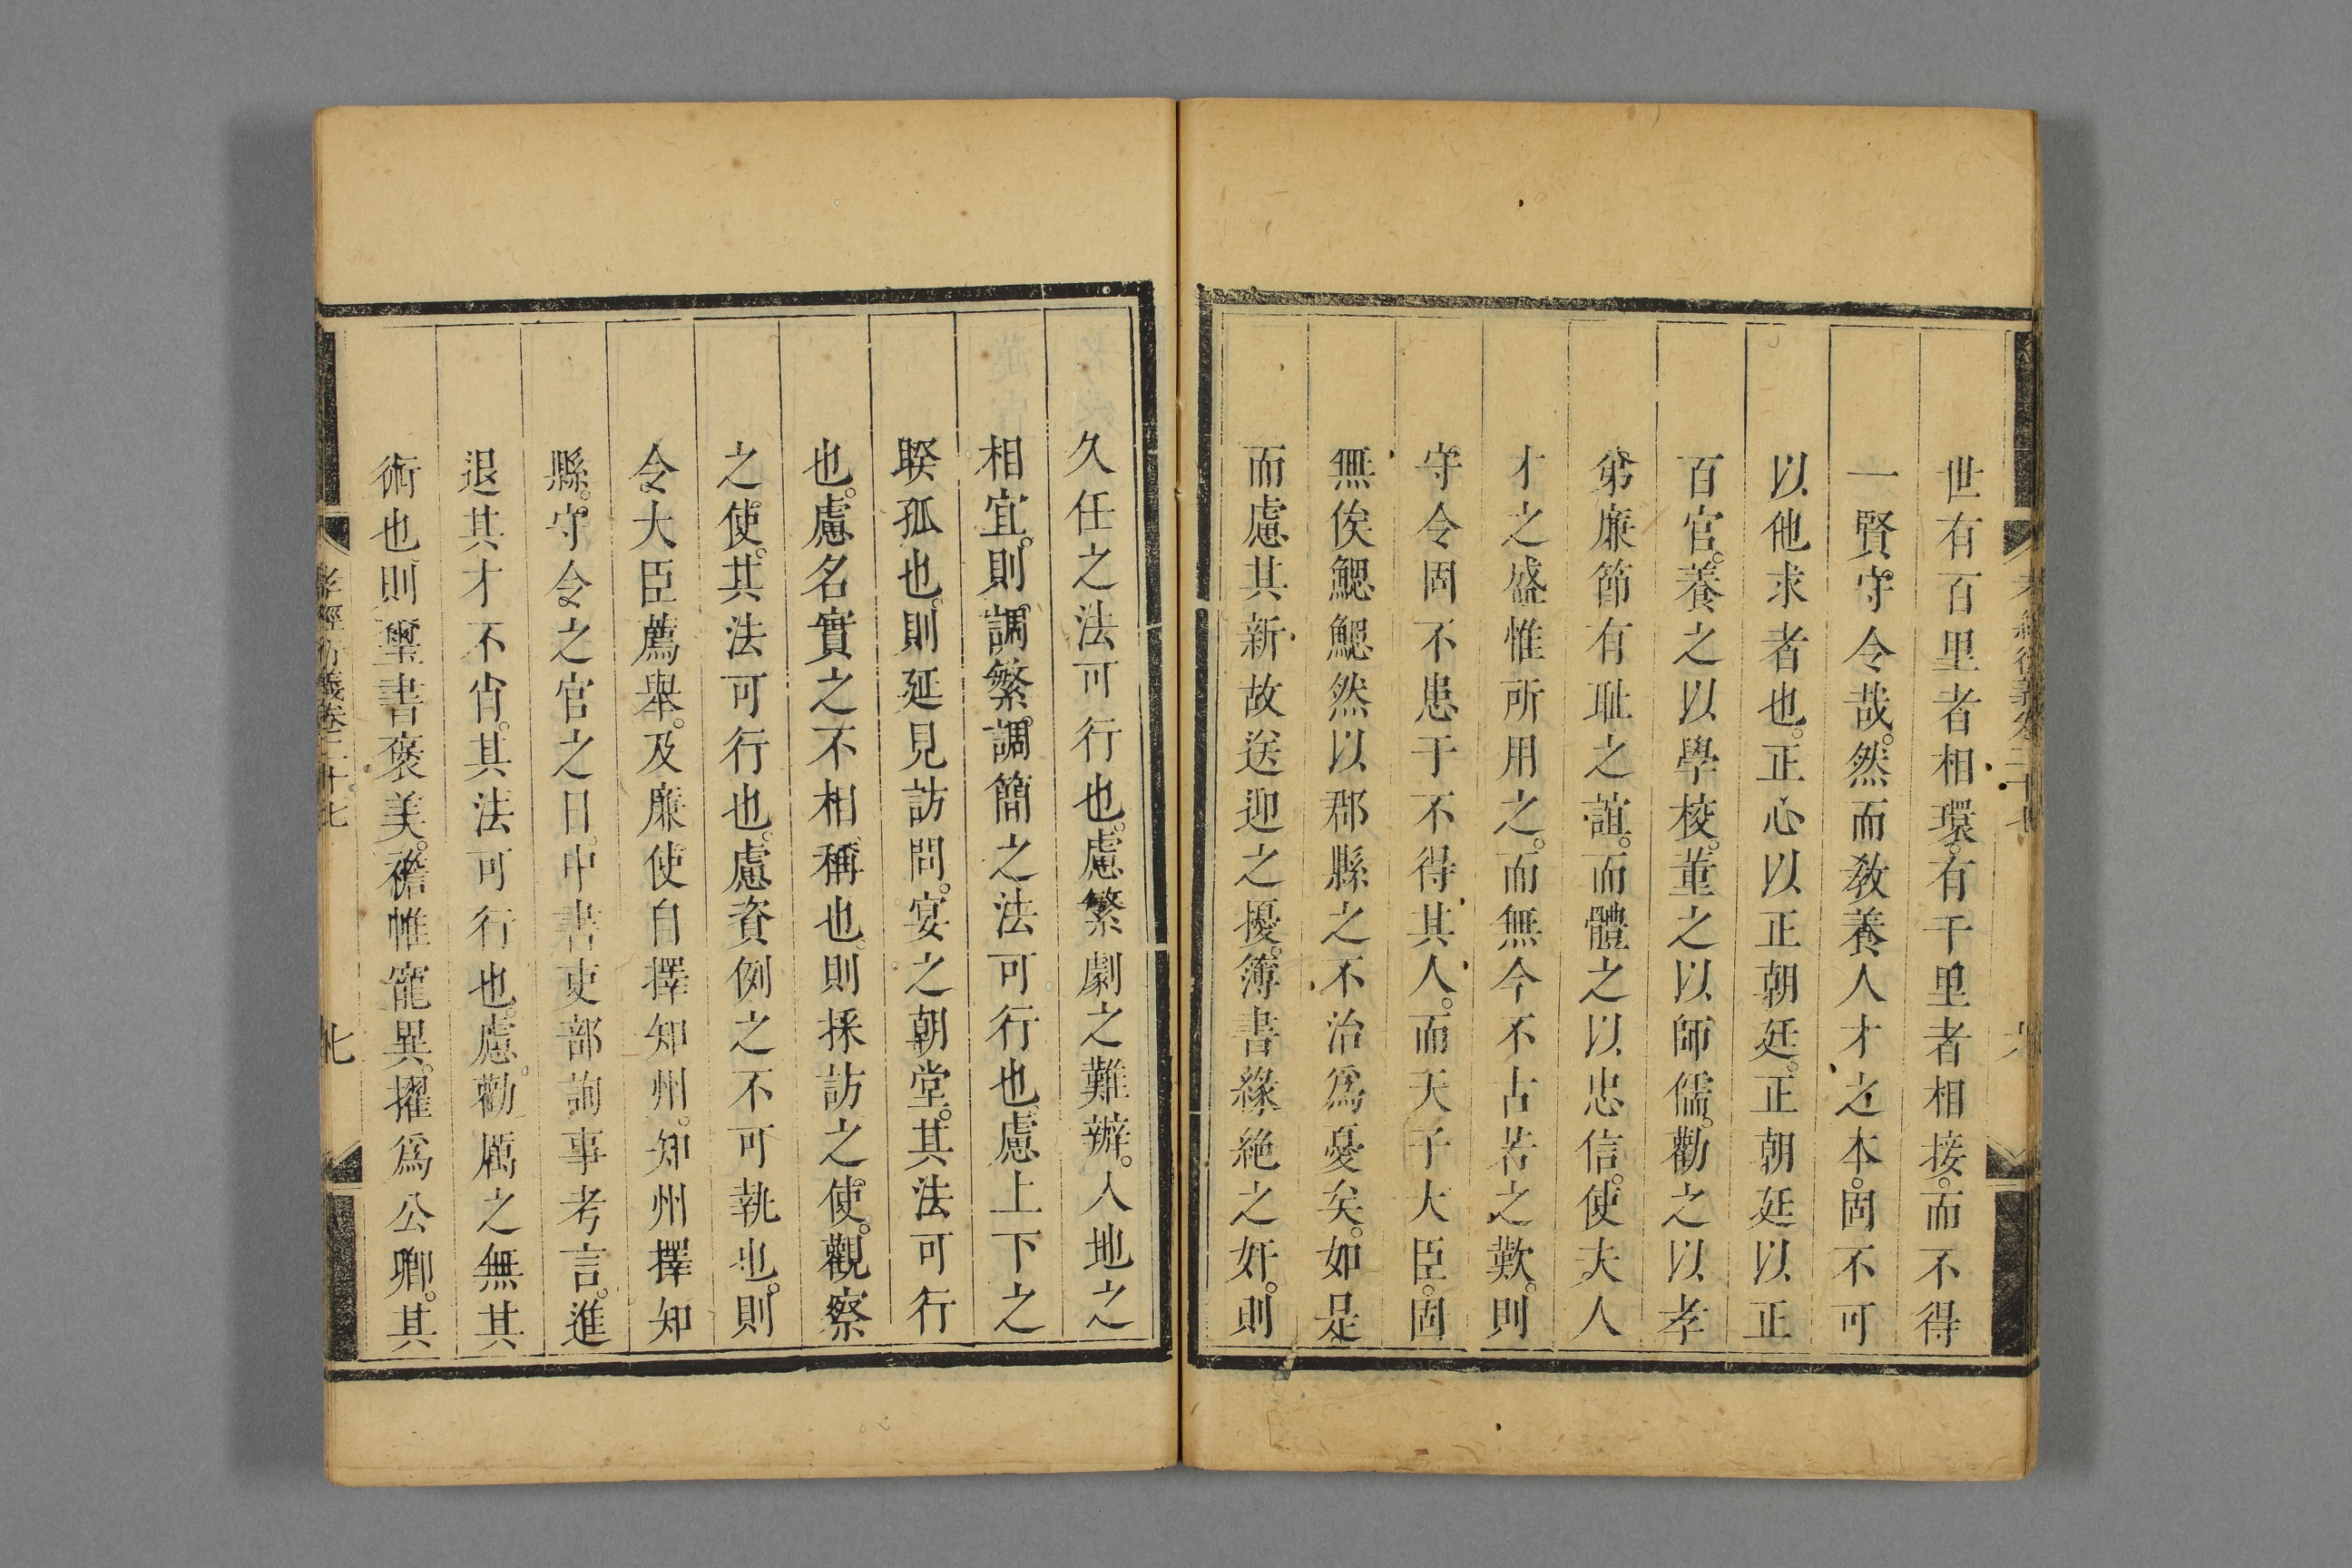 世有百里者相環。有千里者相接。而不得
一賢守令哉。然而教養人才之本。固不可
以他求者也。正心以正朝廷。正朝廷以正
百官。養之以學校。董之以師儒。勸之以孝
弟廉節有耻之誼。而體之以忠信。使夫人
才之盛惟所用之。而無今不古若之歎。則
守令固不患于不得其人。而天子大臣。固
無俟鰓鰓然以郡縣之不治爲憂矣。如是
而慮其新故送迎之擾。簿書緣絶之奸。則
久任之法可行也。慮繁劇之難辦。人地之
相宜。則調繁。調簡之法可行也。慮上下之
睽孤也。則延見訪問。宴之朝堂。其法可行
也。慮名實之不相稱也。則採訪之使。觀察
之使。其法可行也。慮資例之不可執也。則
令大臣薦舉。及廉使自擇知州。知州擇知
縣。守令之官之日。中書吏部詢事考言。進
退其才不肖。其法可行也。慮勸厲之無其
術也。則璽書褒美。襜帷寵異。擢爲公卿。其
孝經衍義卷二十七
七